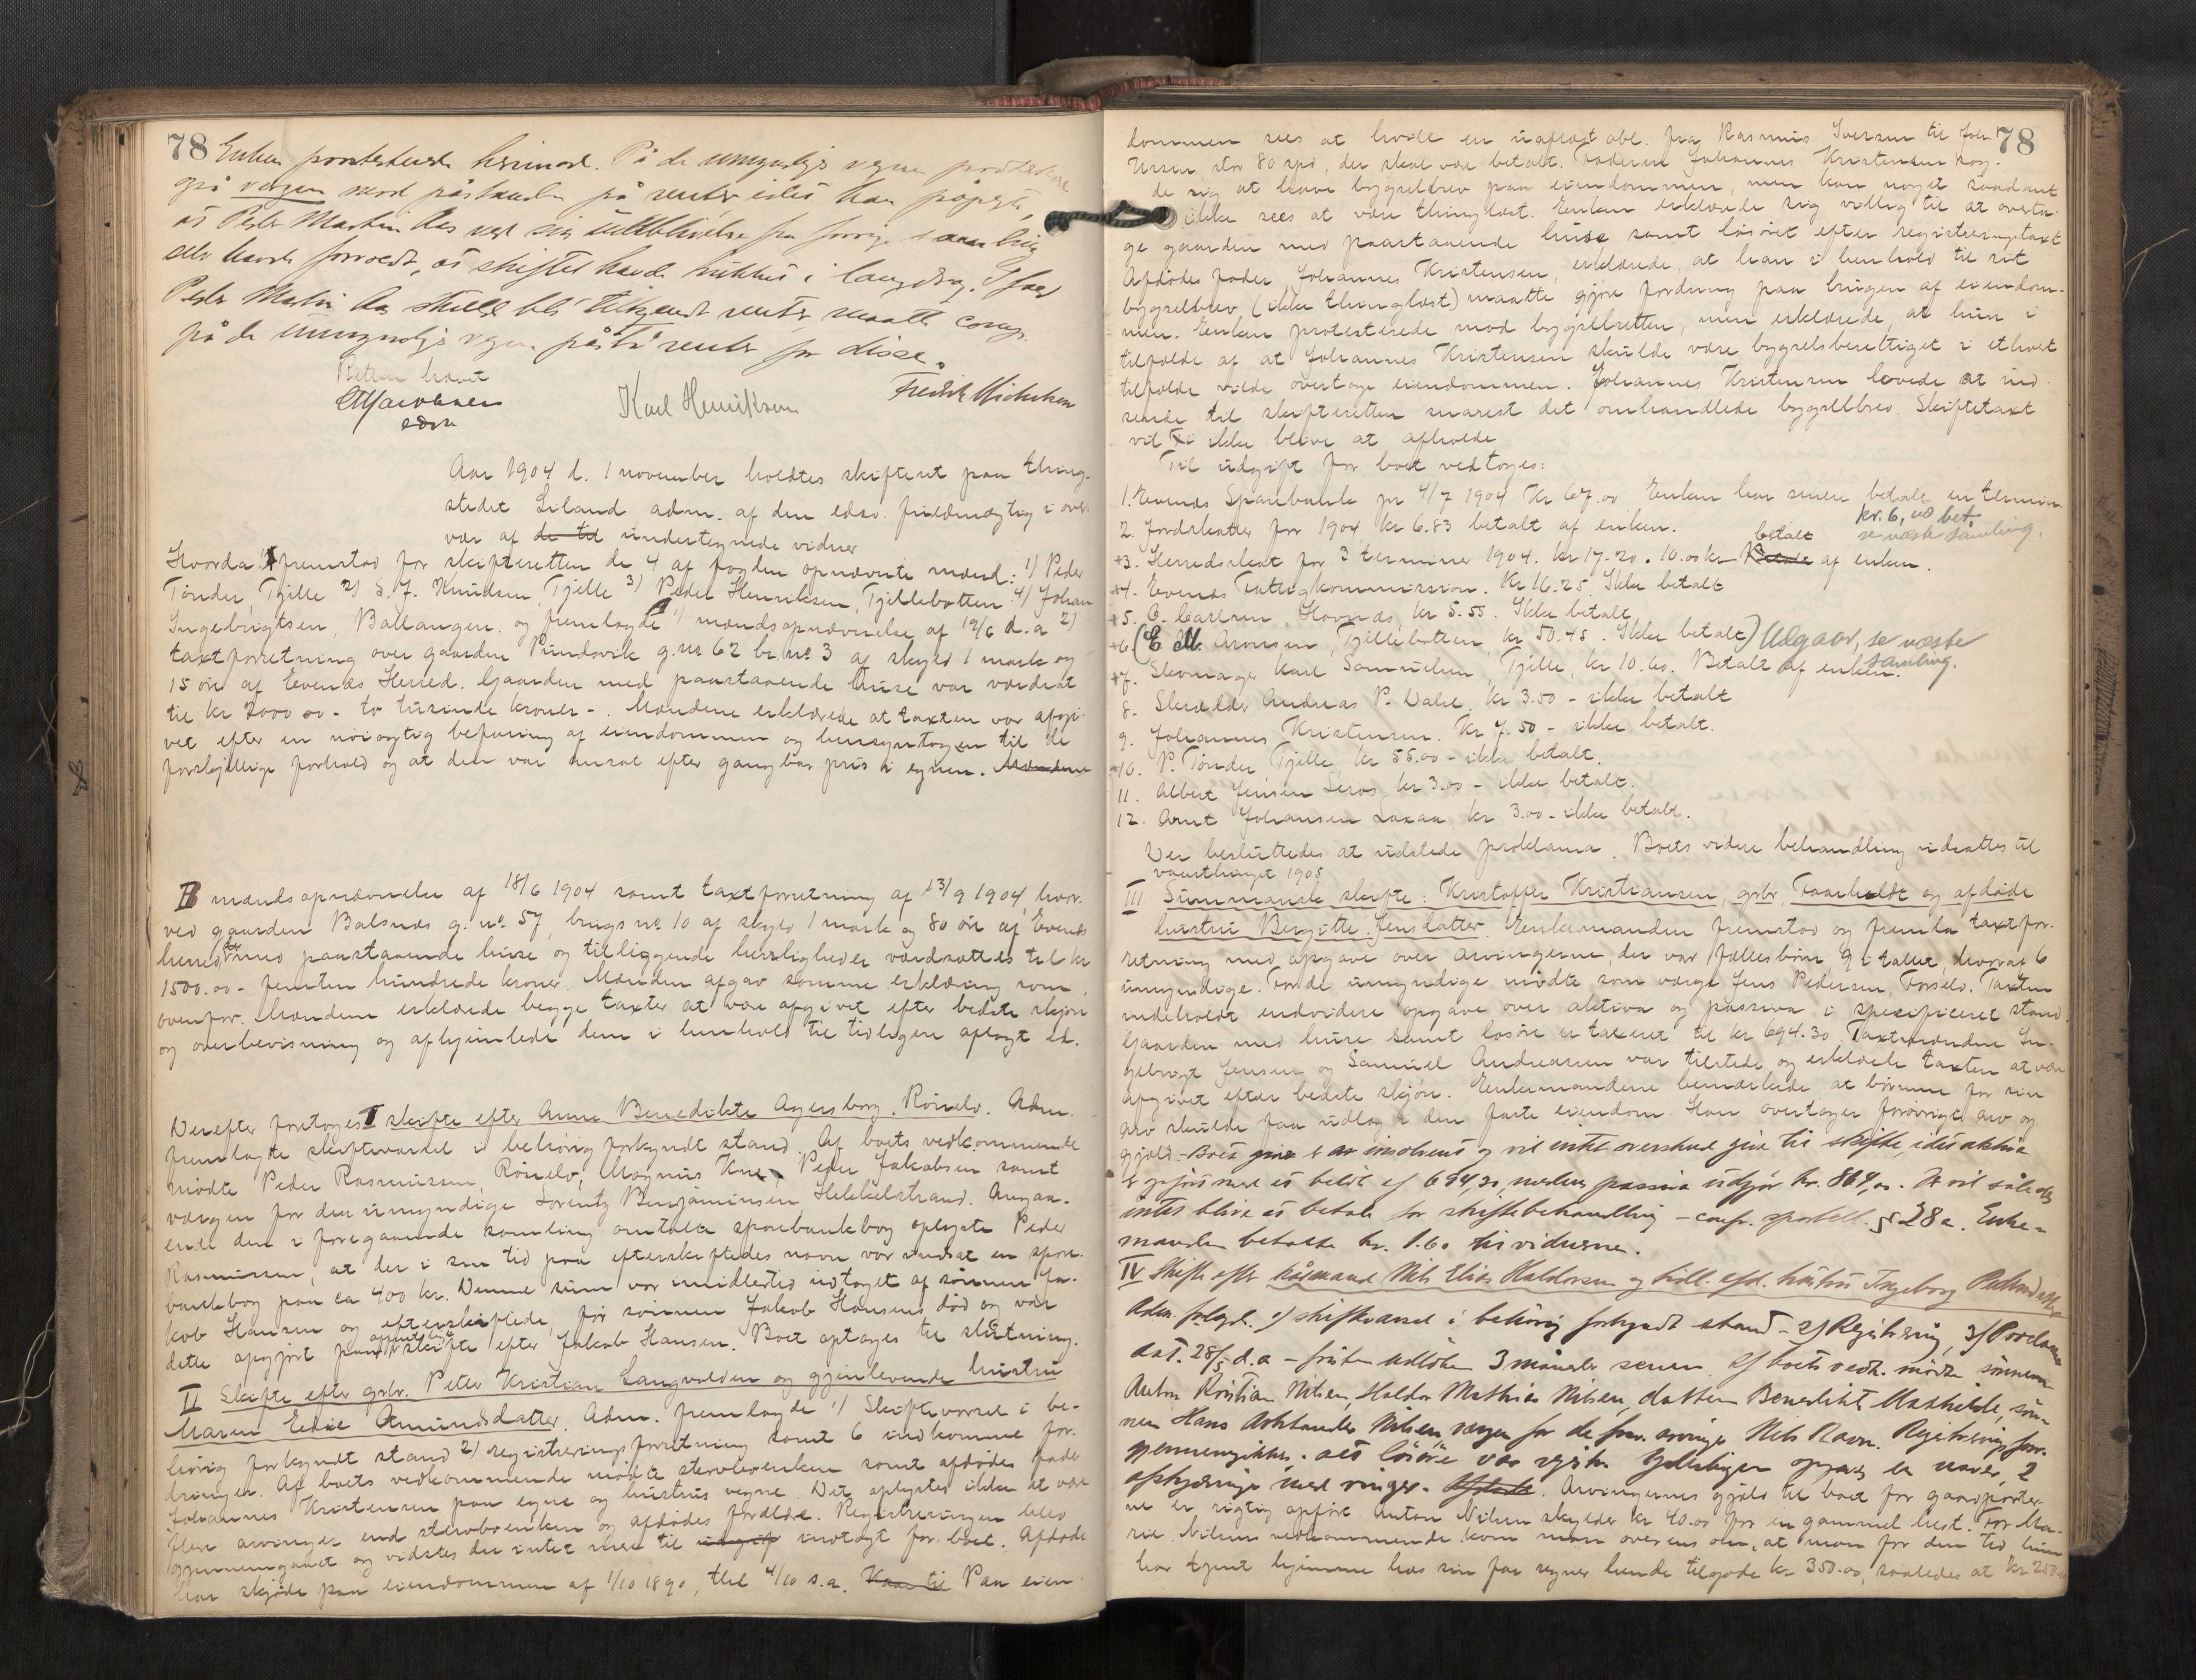 78 Enken protesterede herimod. På de umyndiges vegne protesterede
også vergen mod påstanden på renter idet han påpegte,
at Peder Martin Aas ved sin udeblivelse fra forrige samling
selv havde forvoldt, at skiftet havde trukket i langdrag. Ifald
Peder Martin Aas skulde bli tilkjendt renter maatte
på de umyndiges vegne påstå renter for disse.
Retten hævet
Karl Henriksen
Fredrik Mickelsen
Aar 1904 d. 1 november holdtes skifteret paa thing-
stedet Liland adm. af den edsv. fuldmægtig i over-
vær af de til undertegnede vidner
Hvorda I fremstod for skifteretten de 4 af fogden opnævnte mænd: 1) Peder
Tønder, Tjelle 2) S. J. Knudsen, Tjelle 3) Peder Henriksen, Tjellebotten 4) Johan
Ingebrigtsen, Ballangen. og fremlagde 1) mændsopnævnelse af 19/6 d.a 2)
taxtforretning over gaarden Pundsvik g.no 62 br.no 3 af skyld 1 mark og
15 øre af Evenæs Herred. Gaarden med paastaaende huse var værdsat
til kr 2000.00 - to tusinde kroner -. Mændene erklærede at taxten var afgi-
vet efter en nøiagtig befaring af eiendommen og hensyntagen til de
forskjellige forhold og at den var ansat efter gangbar pris i egnen. Mændene
B mændsopnævnelse af 18/6 1904 samt taxtforretning af 13/9 1904, hvor-
ved gaarden Balsnæs g.no. 57, brugs no 10 af skyld 1 mark og 80 øre af Evenæs
herred med paastaaende huse og tilliggende herligheder værdsattes til kr
1500.00 - femten hundrede kroner. Mænden afgav samme erklæring som
ovenfor. Mændene erklærede begge taxter at være afgivet efter bedste skjøn
og overbevisning og afhjemlede dem i henhold til tidligere aflagt ed.
Derefter foretoges I skifte efter Anne Benedikte Agersborg, Røinelv. Adm.
fremlagte skiftevarsel i behørig forkyndt stand. Af boets vedkommende
mødte Peder Rasmussen, Røinelv, Magnus Kne, Peder Jakobsen samt
værgen for den umyndige Lorentz Benjaminsen Hekkelstrand. Angaa-
ende den i foregaaende samling omtalte sparebankbog oplyste Peder
Rasmussen, at der i sin tid paa efterskiftedes navn var indsat en spare-
bankbog paa ca 400 kr. Denne sum var imidlertid udtaget af sønnen Ja-
kob Hansen og efterskiftede, før sønnen Jakob Hansens død og var
dette opgjort paa skifte efter Jakob Hansen. Boet optages til slutning.
II Skifte efter grbr. Peter Kristian Langvolden og gjenlevende hustru
Maren Amundsdatter. Adm. fremlagde 1) Skiftevarsel i be-
hørig forkyndt stand 2) registreringsforretning samt 6 indkomne for-
dringer. Af boets vedkommende mødte stervboenken samt afdødes fader
Johannes Kristensen paa egne og hustrus vegne. Det oplystes ikke at være
flere arvinger end stervboenken og afdødes forældre. Registreringen blev
gjennemgaaet og vidstes der intet mere til udgift indtægt for boet. Afdøde
har skjøde paa eiendommen af 1/10 1890, thl 4/10 s.a. Kaar til Paa eien-
78
dommen sees at hvile en uaflæst obl. fra Rasmus Iversen til Joh.
Ursin, stor 80 spd, der skal være betalt. Faderen Johannes Kristensen
de sig at have bygselbrev paa eiendommen, men kan noget saadant
ikke sees at være thinglæst. Enken erklærede sig villig til at overta-
ge gaarden med paastaaende huse samt løsøret efter registreringstaxt
Afdødes fader, Johannes Kristensen, erklærede, at han i henhold til sit
bygselbrev (ikke thinglæst) maatte gjøre fordring paa brugen af eiendom-
men. Enken protesterede mod bygselretten, men erklærede, at hun i
tilfælde af at Johannes Kristensen skulde være bygselsberettiget i ethvert
tilfælde vilde overtage eiendommen. Johannes Kristensen lovede at ind-
sende til skifteretten snarest det omhandlede bygselbrev. Skiftetaxt
vil ikke blive at afholde
Til udgift for boet vedtoges:
1. Evenæs Sparebank pr 4/7 1904 Kr 67.00 Enken har senere betalt en termin
kr. 6,00 bet.
2. Jordskatter for 1904, kr 6.83 betalt af enken.
se næste samling.
betalt
+3. Herredsskat for 3 terminer 1904. kr 17.20. 10.00 kr af enken.
+4. Evenæs Fattigkommission. Kr 16.25. Ikke betalt
+5. C. Carlsen, Havnæs, kr 5.55. Ikke betalt
+6. (E M. Aronsen, Tjellebotten, kr 50.45. Ikke betalt) Udgaar, se næste
samling.
+7. Skomager Karl Samuelsen, Tjelle, kr 10.60. Betalt af enken.
8. Skrædder Andreas P. Dahl, kr 3.50 - ikke betalt
9. Johannes Kristensen. Kr 7.50 - ikke betalt.
10. P. Tønder, Tjelle, kr 55.00 - ikke betalt.
11. Albert Jensen kr 3.00 - ikke betalt.
12. Arnt Johansen Laxaa kr 3.00 - ikke betalt.
Der besluttedes at udstede proklama. Boets videre behandling udsattes til
vaarthinget 1905
III Summarisk skifte: Kristoffer Kristiansen, grbr, og afdøde
hustru Birgitte Jensdatter. Enkemanden fremstod og fremla taxtfor-
retning med opgave over arvingerne der var fællesbørn 9 i tallet, hvoraf 6
umyndige. For de umyndige mødte som værge Jens Pedersen, Forselv. Taxten
indeholdt endvidere opgave over aktiva og passiva i specificeret stand.
Gaarden med huse samt løsøre er taxeret til kr 694.30. Taxtmændene In-
gebrigt Jensen og Samuel Andreasen var tilstede og erklærede taxten at være
afgivet efter bedste skjøn. Enkemandene bemærkede at børnene for sin
arv skulde faa udlæg i den faste eiendom. Han overtager forøvrigt arv og
gjæld. - Boet er insolvent og vil intet overskud give til skifte, idet aktiva
er opført med et beløb af 694,30, medens passiva udgjør kr. 869,00. Der vil således
intet blive at betale for skiftebehandling - conf. sportell. § 28 a. Enke-
manden betalte kr. 1.60 til vidnerne.
IV Skifte efter kåsmand Nils Elias Haldorsen og tidl. afd. hustru Ingeborg
Adm. fremlgd. 1) skiftevarsel i behørig forkyndt stand - 2) Registrering, 3) Proclama
dat. 28/5 d.a - fristen udløben 3 måneder senere. Af boets vedk. mødte sønnen
Anton Kristian Nilsen, Haldor Mathias Nilsen, datteren Benedikte Mathilde, søn-
nen Hans Nilsen, værgen for de arvinge Nils Ravn. Registreringsforr.
gjennemgikkes. alt løsøre var
med ringer. Arvingernes gjæld til boet for gaardparter-
ne er rigtig opført. Anton Nilsen skylder kr 40.00 for en gammel hest. For Ma-
rie Nilsens vedkommende kom man overens om, at man for den tid hun
har tjent hjemme hos sin far regner hende tilgode kr 350.00, saaledes at kr 250.